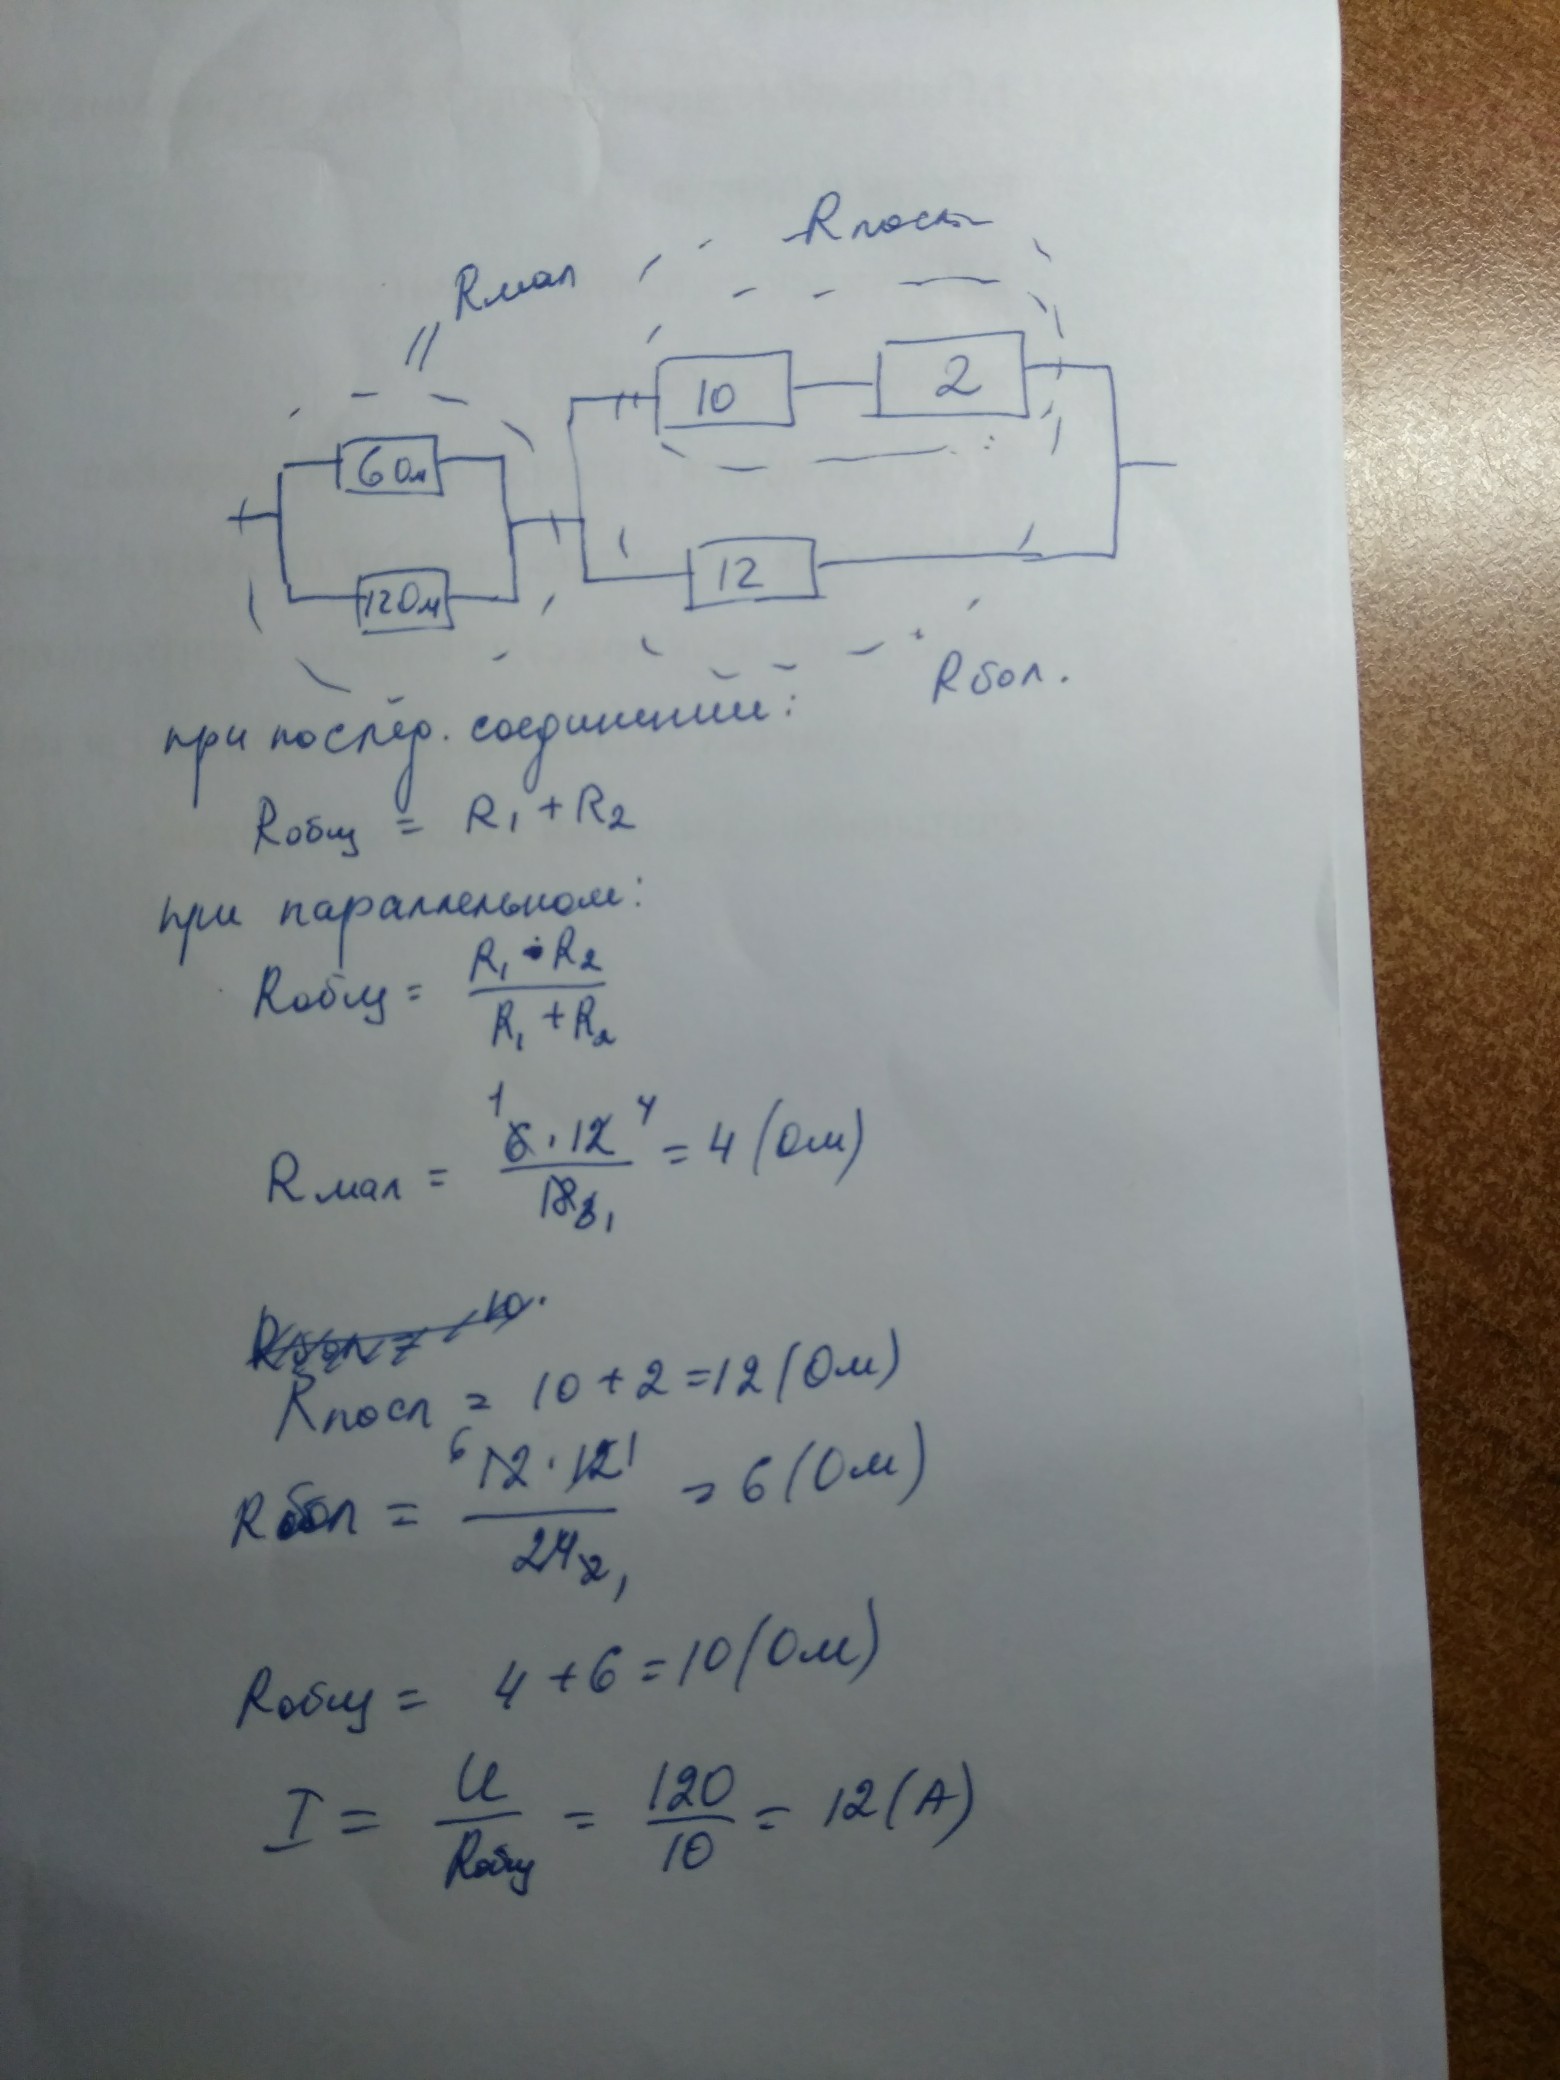 Rпосл
Rмал
10
2
6 Ом
12
12 Ом
Rбол.
при послед. соединений:
Rобщ = R1 + R2
при параллельном:
Rобщ = R1 • R2 / R1 + R2
Rмал = 6 · 12 / 18 = 4 (Ом)
Rпосл = 10 + 2 = 12 (Ом)
Rбол = 12 · 12 / 24 = 6 (Ом)
Rобщ = 4 + 6 = 10 (Ом)
I = U / Rобщ = 120 / 10 = 12 (А)